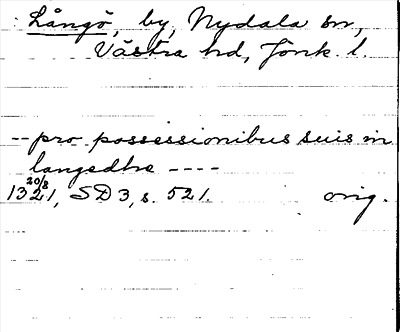 Långö, by, Nydala sn,
Västra hd, Jönk. l.
-- pro possessionibus suis in
langedhe ----
13 20/8 21, SD 3, s. 521. orig.